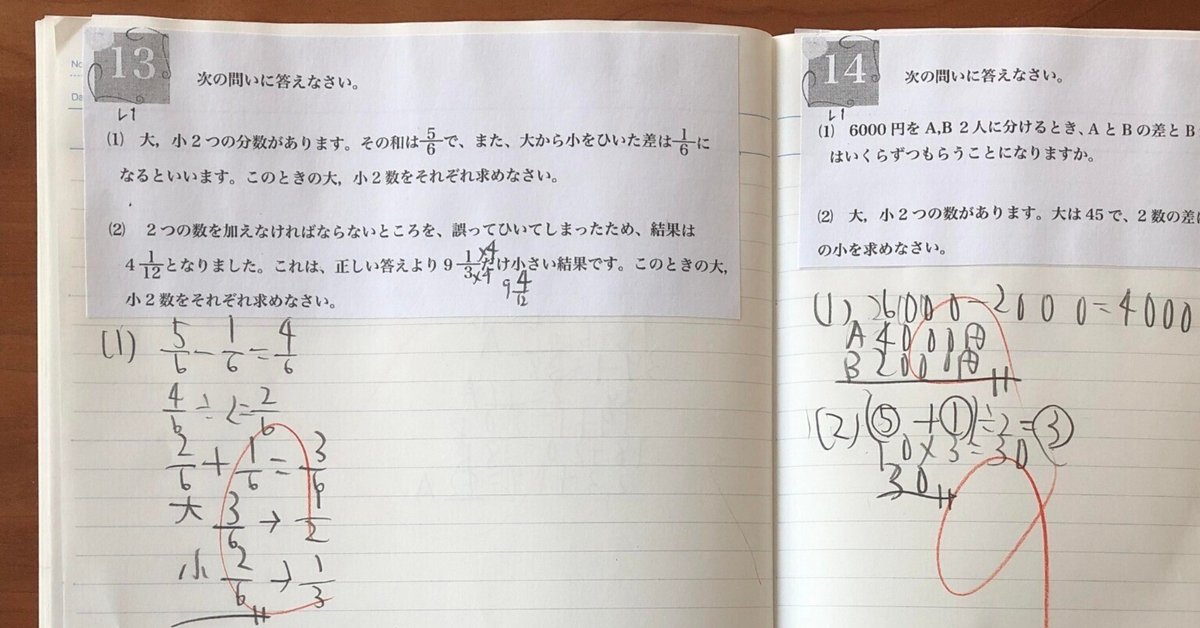 No
Da
13 次の問いに答えなさい。
L1
(1) 大，小2つの分数があります。その和は5/6で、また、大から小をひいた差は1/6に
なるといいます。このときの大，小2数をそれぞれ求めなさい。
(2) 2つの数を加えなければならないところを、誤ってひいてしまったため、結果は
4 1/12となりました。これは、正しい答えより9 1/3だけ小さい結果です。このときの大，
×4
×4
9 4/12
小2数をそれぞれ求めなさい。
(1) 5/6 − 1/6 = 4/6
4/6 ÷ 2 = 2/6
2/6 + 1/6 = 3/6
大 3/6 → 1/2
小 2/6 → 1/3
14 次の問いに答えなさい。
L1
(1) 6000円をA,B 2人に分けるとき、AとBの差とB
はいくらずつもらうことになりますか。
(2) 大，小2つの数があります。大は45で、2数の差は
の小を求めなさい。
(1) 6000−2000=4000
A 4000円
B 2000円
(2) (⑤+①)÷2=③
10×3=30
30